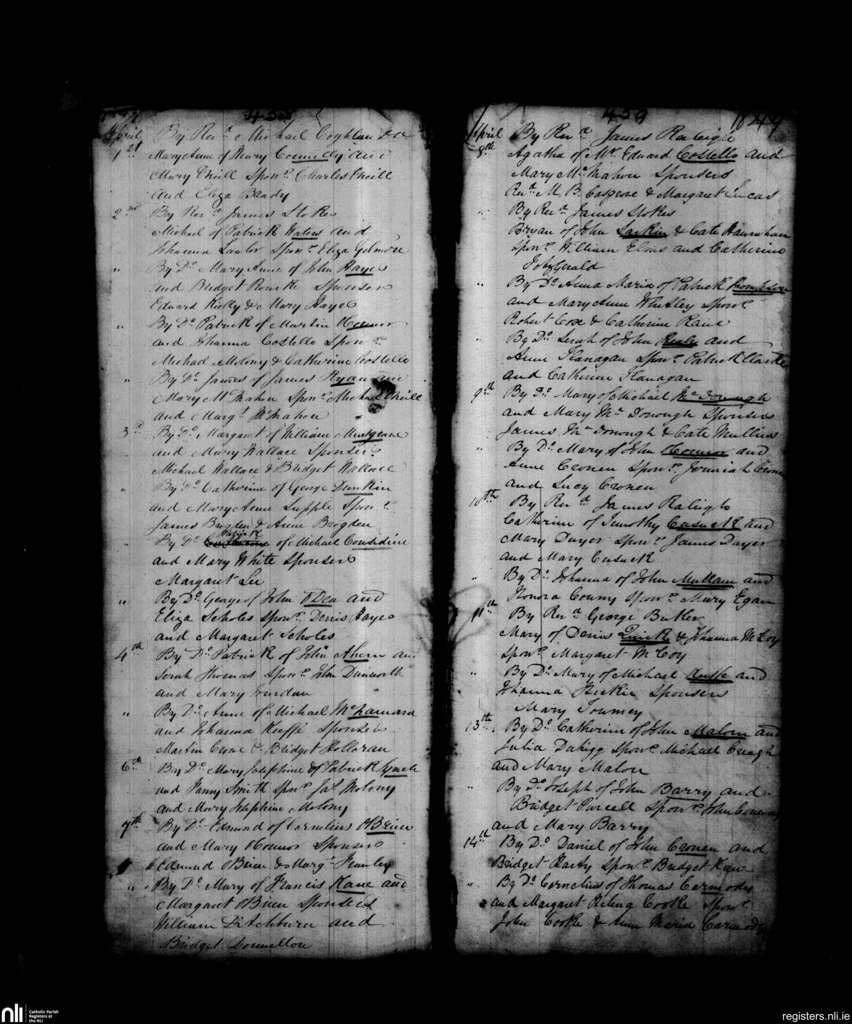 458
April By Revd. Michael Coghlan
1st Mary Anne of Henry Connelly and
Mary Neill Sponrs. Charles Neill
and Eliza Brady
2nd By Revd. James Stokes
Michael of Patrick and
Johanna Lawlor Sponr. Eliza Gilmore
" By Do. Mary Anne of John Hayes
and Bridget Sponsors
Edward & Mary Hayes
" By Do. Patrick of Martin Connor
and Johanna Costello Sponrs.
Michael Molony & Catherine Costello
" By Do. James of James Ryan and
Mary McMahon Sponrs. Michael Neill
and Margt. McMahon
3d By Do. Margaret of William Musgrave
and Mary Wallace Sponsors
Michael Wallace & Bridget Wallace
" By Do. Catherine of George Dunkin
and Mary Anne Supple Sponrs.
James Brogden & Anne Brogden
" By Do. Patrick of Michael Considine
and Mary White Sponsors
Margaret Lee
" By Do. George of John O Dea and
Eliza Scholes Sponrs. Denis Hayes
and Margaret Scholes
4th By Do. Patrick of John Ahern and
Sarah Thomas Sponrs. John
and Mary Jourdan
" By Do. Anne of Michael McNamara
and Johanna Keeffe Sponsors
Martin & Bridget Holloran
6th By Do. Mary Josephine of Patrick Lynch
and Fanny Smith Sponrs. Jas. Molony
and Mary Josephine Molony
7th By Do. Edmund of Cornelius O'Brien
and Mary Connor Sponsors
Edmund Brien & Margt.
" By Do. Mary of Francis Kane and
Margaret Brien Sponsors
William Ditchburn and
Bridget Donnellon
459 1849
April By Revd. James Raleigh
8th Agatha of Mr. Edward Costello and
Mary McMahon Sponsors
Revd. M. B. Cosgrave & Margaret Lucas
" By Revd. James Stokes
Bryan of John Larkin & Cate Hanrahan
Sponrs. William Elms and Catherine
Fitzgerald
" By Do. Anna Maria of Patrick Thompson
and Mary Anne Whitley Sponrs.
Robert Coxe & Catherine Kane
" By Do. Sarah of John and
Anne Flanagan Sponrs. Patrick
and Catherine Flanagan
9th By Do. Mary of Michael McDonough
and Mary McDonough Sponsors
James McDonough & Cate Mullins
" By Do. Mary of John Connor and
Anne Cronen Sponrs. Jeremiah Cronen
and Lucy Cronen
10th By Revd. James Raleigh
Catherine of Timothy Cusack and
Mary Dwyer Sponrs. James Dwyer
and Mary Cusack
" By Do. Johanna of John Mullane and
Honora Sponr. Mary Egan
11th By Revd. George Butler
Mary of Denis Quirk & Johanna McCoy
Sponr. Margaret McCoy
" By Do. Mary of Michael and
Johanna Sponsors
Mary
13th By Do. Catherine of John Malon and
Julia Sponrs. Michael Creagh
and Mary Malon
" By Do. Joseph of John Barry and
Bridget Purcell Sponrs. John
and Mary Barry
14th By Do. Daniel of John Cronen and
Bridget Sponr. Bridget
" By Do. Cornelius of Thomas Carmody
and Margaret Cooke Sponrs.
John Cooke & Anna Maria Carmody
nli Catholic Parish
Registers at
the NLI
registers.nli.ie